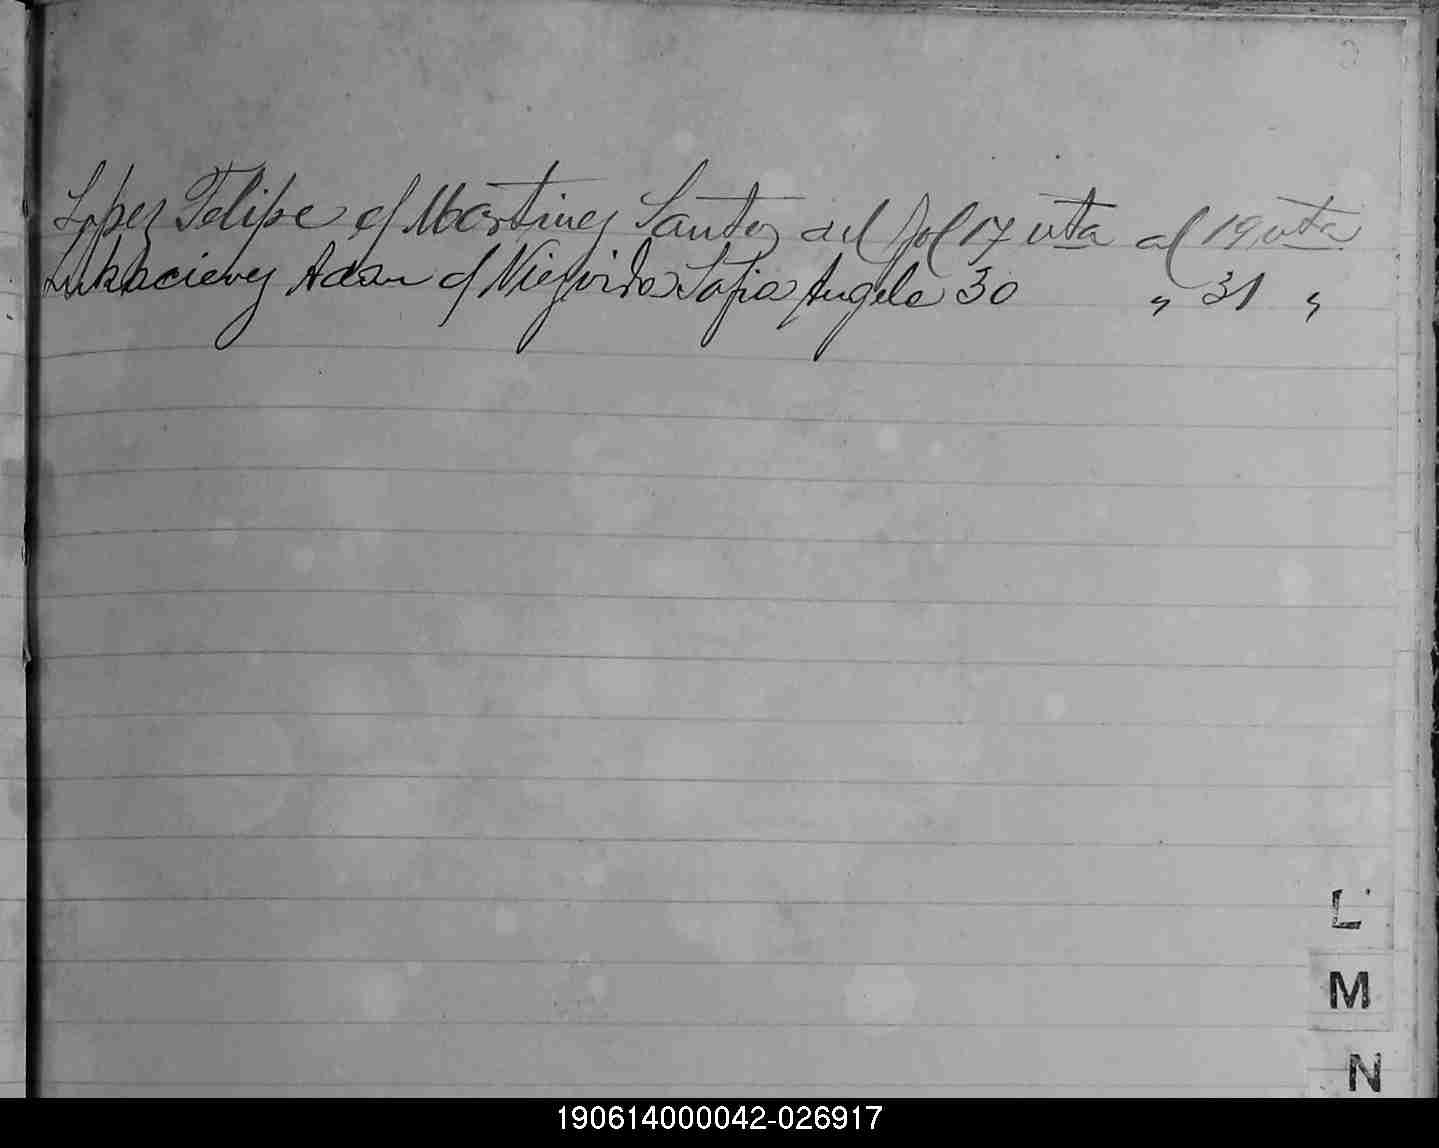 Lopez Felipe c/ Martinez Santos del fol 17 vta al 19 vta
Lukacievez Adan c/ Niezvida Sofia Angela 30 " 31 "
L
M
N
190614000042-026917